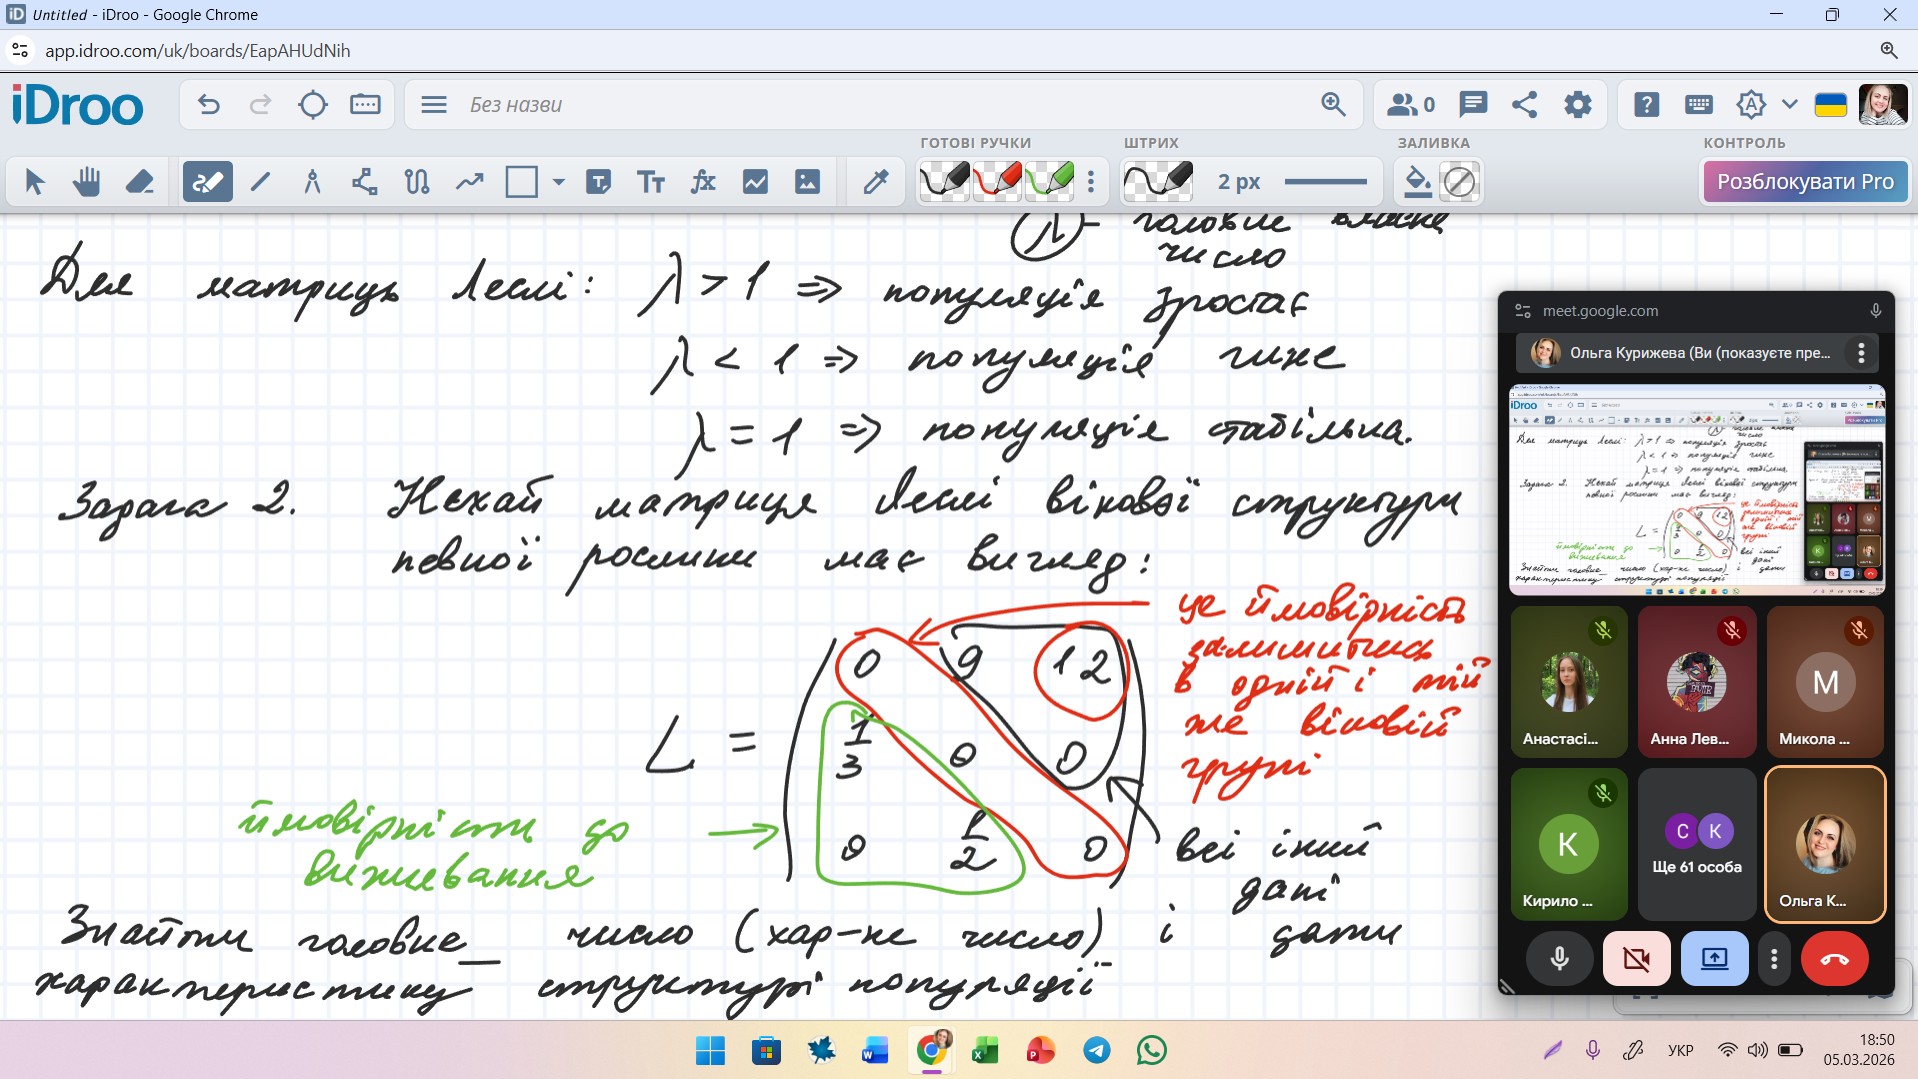 Untitled - iDroo - Google Chrome
app.idroo.com/uk/boards/EapAHUdNih
iDroo
Без назви
0
ГОТОВІ РУЧКИ
ШТРИХ
ЗАЛИВКА
КОНТРОЛЬ
2 px
Розблокувати Pro
λ - головне власне
число
Для матриць Леслі: λ > 1 ⇒ популяція зростає
λ < 1 ⇒ популяція гине
λ = 1 ⇒ популяція стабільна.
Задача 2. Нехай матриця Леслі вікової структури
певної рослини має вигляд:
це ймовірність
залишитись
в одній і тій
же віковій
групі
L = 
0 9 12
1/3 0 0
0 1/2 0
ймовірність до
виживання
всі інші
дані
Знайти головне число (хар-не число) і дати
характеристику структурі популяції
meet.google.com
Ольга Курижева (Ви (показуєте пре...
Анастасі...
Анна Лев...
M
Микола ...
K
Кирило ...
С К
Ще 61 особа
Ольга К...
УКР
18:50
05.03.2026